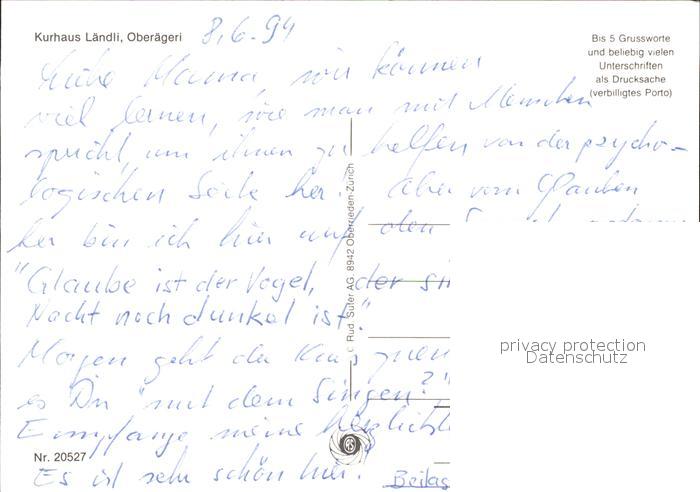 Kurhaus Ländli, Oberägeri 8.6.94
Bis 5 Grussworte
und beliebig vielen
Unterschriften
als Drucksache
(verbilligtes Porto)
Liebe Mama, wir können
viel lernen, wie man mit Menschen
spricht, um ihnen zu helfen von der psycho-
logischen Seite her. Aber vom Glauben
her bin ich hier auf den
"Glaube ist der Vogel, der si
Nacht noch dunkel ist."
Morgen geht der Kurs
es Dir "mit dem Singen?"
Empfange meine herzlichst
Es ist sehr schön hier! Beilag
© Rud. Suter AG, 8942 Oberrieden-Zürich
Nr. 20527
privacy protection
Datenschutz